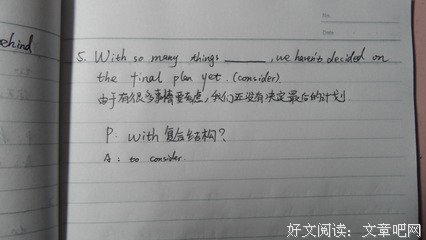 No.
Date
ehind
5. With so many things ______, we haven't decided on
the final plan yet. (consider).
由于有很多事情要考虑, 我们还没有决定最后的计划
P: with 复合结构?
A: to consider.
好文阅读: 文章吧网